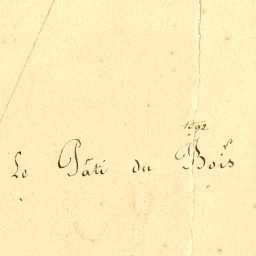 1892
Le Pâti du Bois